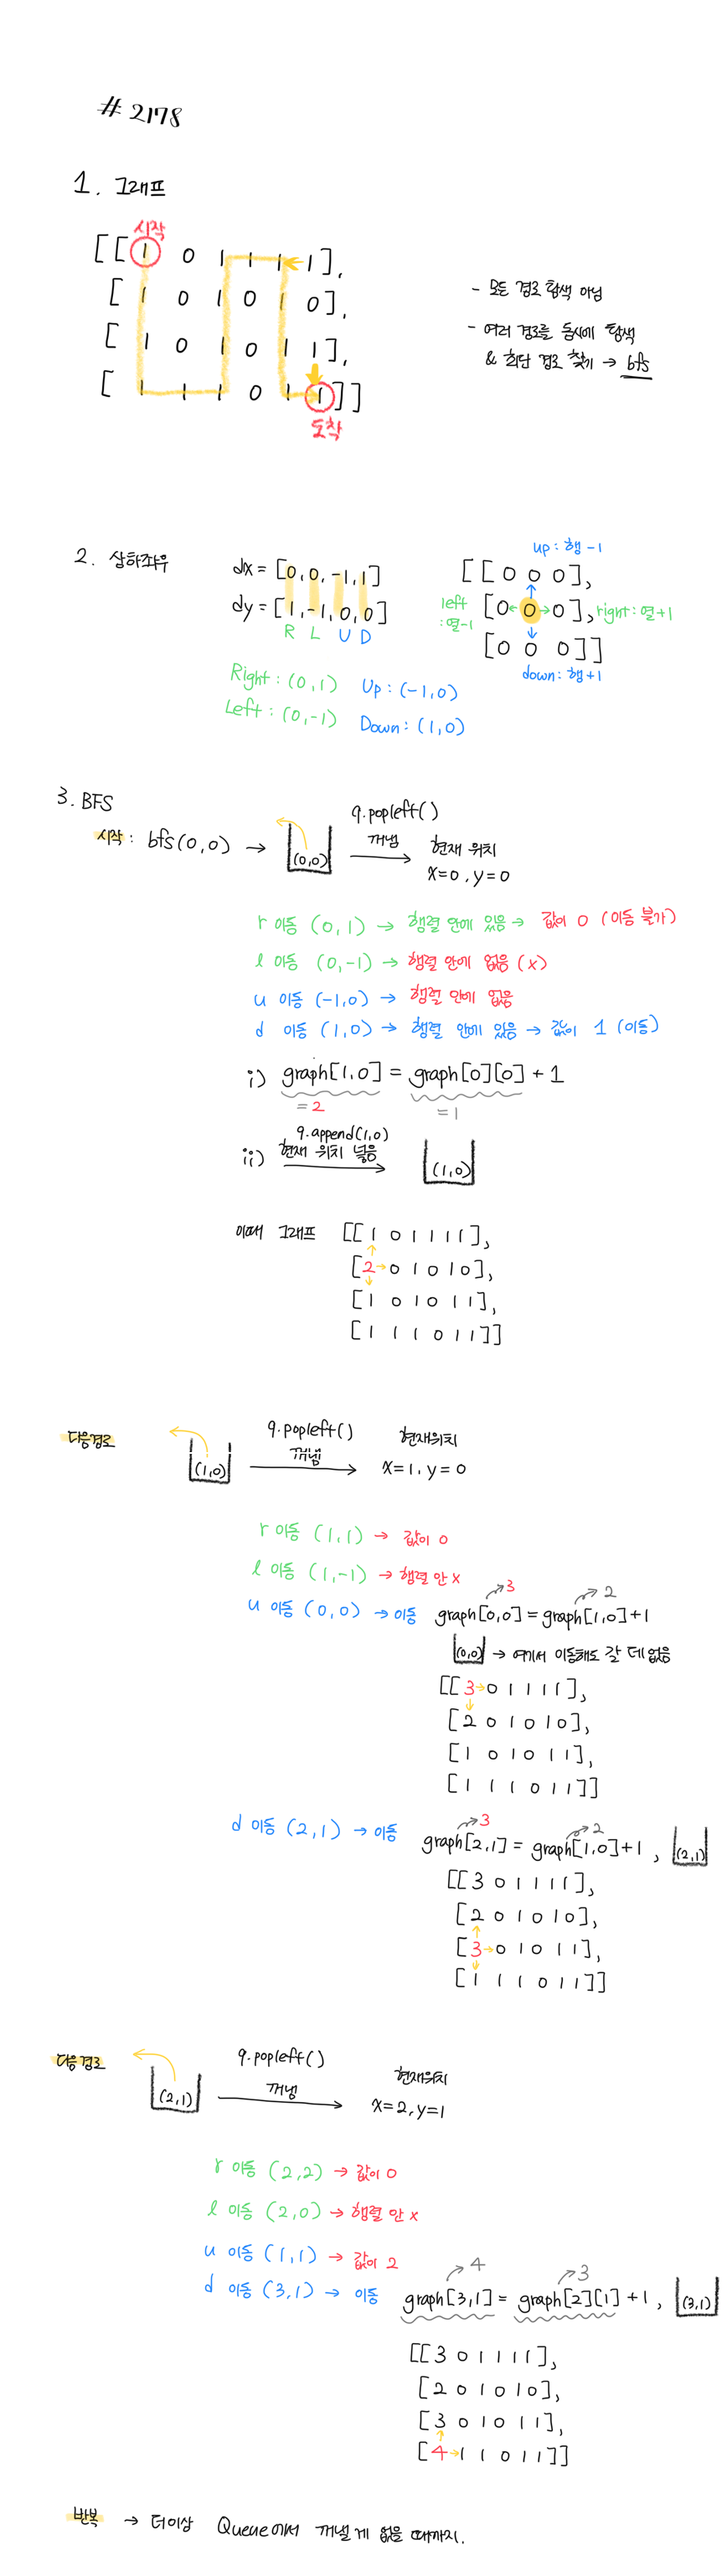 # 2178
1. 그래프
시작
[[1 0 1 1 1 1],
[1 0 1 0 1 0],
[1 0 1 0 1 1],
[1 1 1 0 1 1]]
도착
- 모든 경로 탐색 아님
- 여러 경로를 동시에 탐색
& 최단 경로 찾기 → bfs
2. 상하좌우
dx = [0, 0, -1, 1]
dy = [1, -1, 0, 0]
R L U D
Right : (0, 1) Up : (-1, 0)
Left : (0, -1) Down : (1, 0)
up : 행 -1
[[0 0 0],
left : 열-1
[0 0 0],
right : 열+1
[0 0 0]]
down : 행+1
3. BFS
시작 : bfs(0,0) → (0,0)
q.popleft()
꺼냄
현재 위치
x=0, y=0
r 이동 (0,1) → 행렬 안에 있음 → 값이 0 (이동 불가)
l 이동 (0,-1) → 행렬 안에 없음 (x)
u 이동 (-1,0) → 행렬 안에 없음
d 이동 (1,0) → 행렬 안에 있음 → 값이 1 (이동)
i) graph[1,0] = graph[0][0] + 1
= 2 = 1
q.append(1,0)
ii) 현재 위치 넣음 (1,0)
이때 그래프 [[1 0 1 1 1 1],
[2 → 0 1 0 1 0],
[1 0 1 0 1 1],
[1 1 1 0 1 1]]
다음경로
(1,0)
q.popleft()
꺼냄
현재위치
x=1, y=0
r 이동 (1,1) → 값이 0
l 이동 (1,-1) → 행렬 안 x
3 2
u 이동 (0,0) → 이동 graph[0,0] = graph[1,0]+1
(0,0) → 여기서 이동해도 갈 데 없음
[[3 → 0 1 1 1 1],
[2 0 1 0 1 0],
[1 0 1 0 1 1],
[1 1 1 0 1 1]]
3 2
d 이동 (2,1) → 이동 graph[2,1] = graph[1,0]+1, (2,1)
[[3 0 1 1 1 1],
[2 0 1 0 1 0],
[3 → 0 1 0 1 1],
[1 1 1 0 1 1]]
다음 경로
(2,1)
q.popleft()
꺼냄
현재위치
x=2, y=1
r 이동 (2,2) → 값이 0
l 이동 (2,0) → 행렬 안 x
u 이동 (1,1) → 값이 2
4 3
d 이동 (3,1) → 이동 graph[3,1] = graph[2][1] +1, (3,1)
[[3 0 1 1 1 1],
[2 0 1 0 1 0],
[3 0 1 0 1 1],
[4 → 1 1 0 1 1]]
반복 → 더이상 Queue에서 꺼낼 게 없을 때까지.